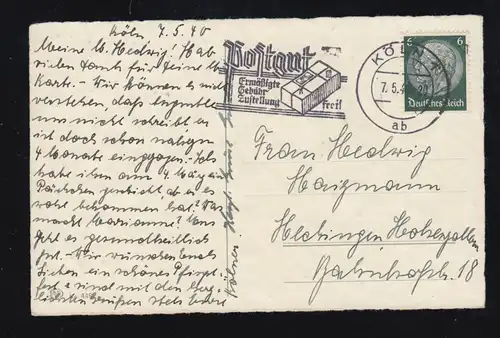 Köln, 7.5.40
Meine lb. Hedwig! Hab
vielen Dank für Deine lb.
Karte. Wir können es nicht
verstehen, daß
uns nicht schreibt er
ist doch schon
4 Monate eingezogen. Ich
habe ihm am 4. Mai ein
Päckchen geschickt, ob er es
wohl bekommen hat? Was
macht Marianne? Uns
geht es gesundheitlich
gut. Wir wünschen Euch
Lieben ein schönes Pfingst-
fest u. sind mit den herz-
lichsten Grüßen stets Eure
Kölner.
Postgut
Ermäßigte
Gebühr
Zustellung
frei!
KÖLN
7.5.4
ab
6 6
Deutsches Reich
Frau Hedwig
Haizmann
Hechingen Hohenzollern
Bahnhofstr. 18